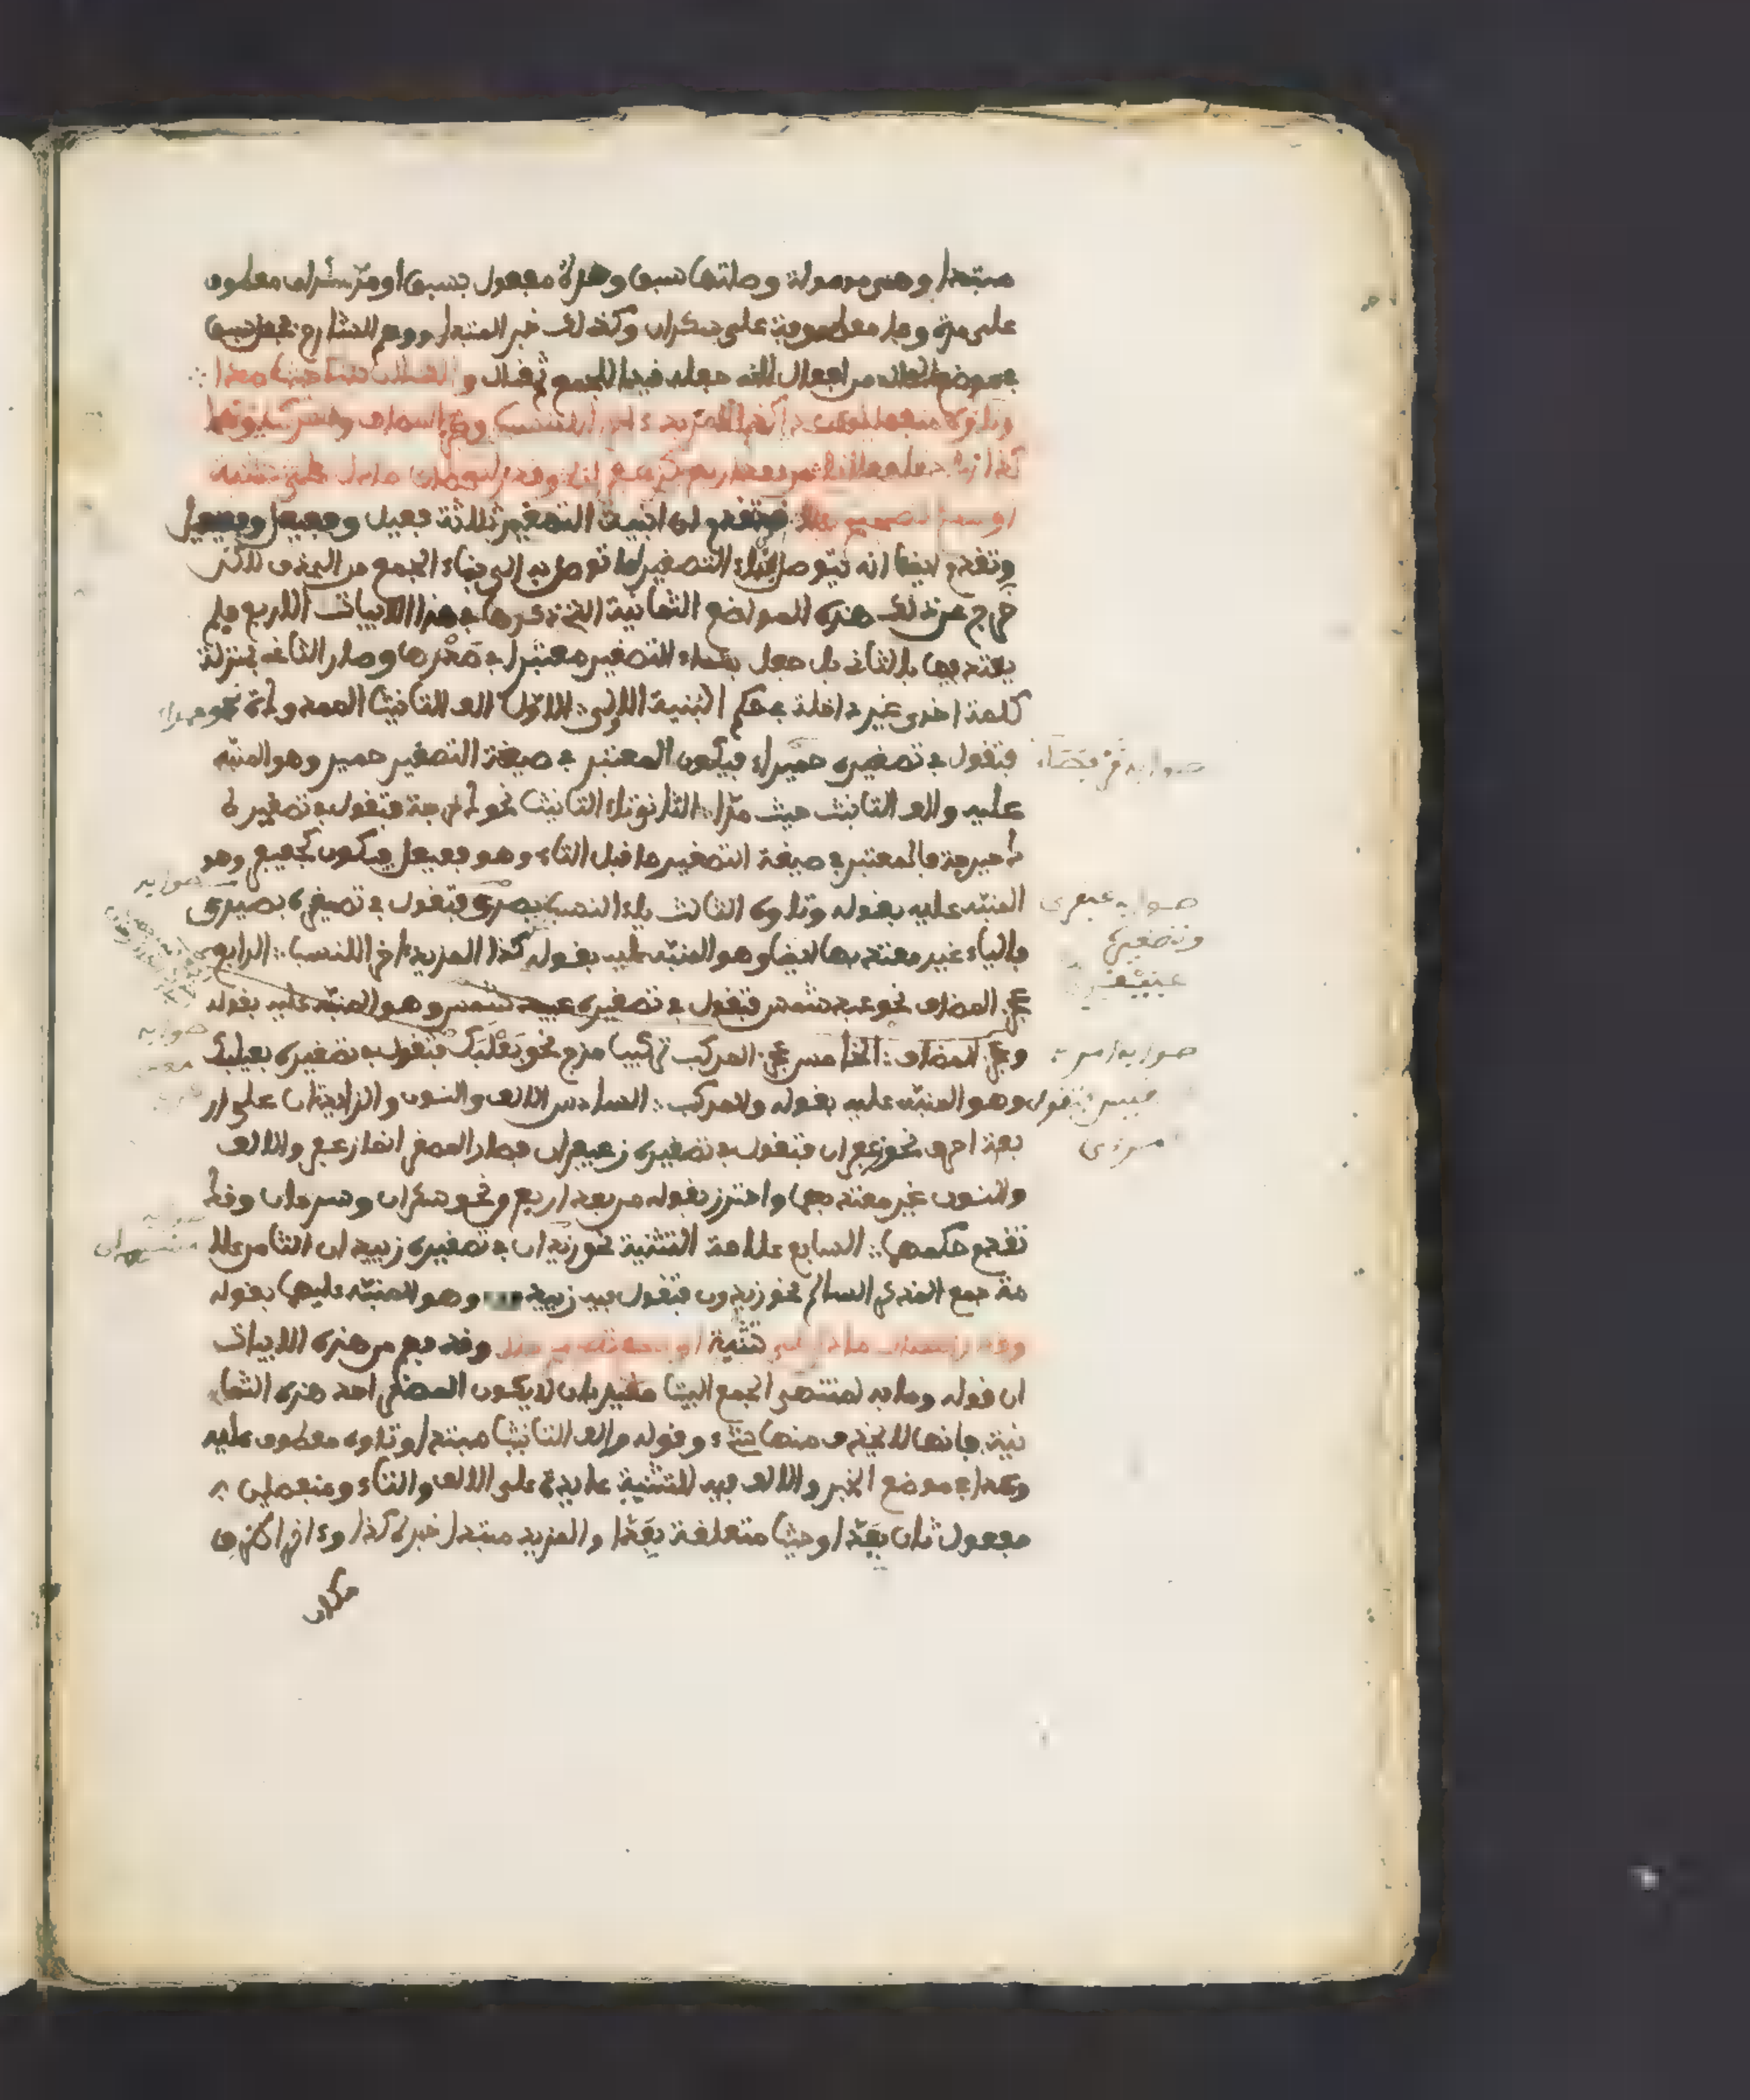 مبتدا وهي موصولة وصلتها سبق ومدة مفعول بسبق او مد سكران معطوف
على مدة وما معطوفة على سكران وكذلك خبر المبتدا ووهم الشارح فجعل سبق
في موضع الحال من افعال لانه جعله قيدا للجمع ثم قال والف التانيث حيث مدا
وتاؤه منفصلين عدا كذا المزيد ءاخرا للنسب وعجز المضاف والمركب وهكذا
زيادتا فعلانا من بعد اربع كزعفرانا وقدر انفصال ما دل على تثنية
او جمع تصحيح جلا قد تقدم ان ابنية التصغير ثلاثة فعيل وفعيعل وفعيعيل
وتقدم ايضا انه يتوصل لبناء التصغير بما توصل به الى بناء الجمع من الحذف لاكن
خرج عن ذلك هذه المواضع الثمانية التي ذكرها في هذه الابيات الاربع فلم
يعتد فيها بالثاني بل جعل بناء التصغير معتبرا في صدرها وصار الثاني بمنزلة
كلمة اخرى غير داخلة في حكم البنية الاولى الاول الف التانيث الممدودة نحو حمراء
فتقول في تصغيره حميراء فيكون المعتبر في صيغة التصغير حمير وهو المنبه
عليه والف التانيث حيث مدا الثاني تاء التانيث نحو دحرجة فتقول في تصغيره
دحيرجة فالمعتبر في صيغة التصغير ما قبل التاء وهو فعيعل فيكون كجعيفر وهو
المنبه عليه بقوله وتاؤه الثالث ياء النسب بصري فتقول في تصغيره بصيري
فالياء غير معتد بها ايضا وهو المنبه عليه بقوله كذا المزيد ءاخرا للنسب الرابع
عجز المضاف نحو عبد شمس فتقول في تصغيره عبيد شمس وهو المنبه عليه بقوله
وعجز المضاف الخامس عجز المركب تركيب مزج نحو بعلبك فتقول في تصغيره بعيلبك
وهو المنبه عليه بقوله والمركب السادس الالف والنون الزائدتان على ار
بعة احرف نحو زعفران فتقول في تصغيره زعيفران فصار المصغر انما زعفر والالف
والنون غير معتد بهما واحترز بقوله من بعد اربع من نحو سكران وسرحان وقد
تقدم حكمهما السابع علامة التثنية نحو زيدان في تصغيره زييدان الثامن علا
مة جمع المذكر السالم نحو زيدون فتقول فيه زييدون وهو المنبه عليهما بقوله
وقدر انفصال ما دل على تثنية او جمع تصحيح جلا وقد فهم من هذه الابيات
ان قوله وما به لمنتهى الجمع البيت مقيد بان لا يكون المصغر احد هذه الثما
نية فانها لا يحذف منها شيء وقوله والف التانيث مبتدا وتاؤه معطوف عليه
وعدا في موضع الخبر والالف فيه للتثنية عايدة على الالف والتاء ومنفصلين
مفعول ثان بعدا وحيث متعلقة بعدا والمزيد مبتدا خبره كذا وءاخرا ظرف
مكان
صوابه قرفصاء
صوابه عبقري
وتصغيره
عبيقري
صوابه امرء
القيس فتقول